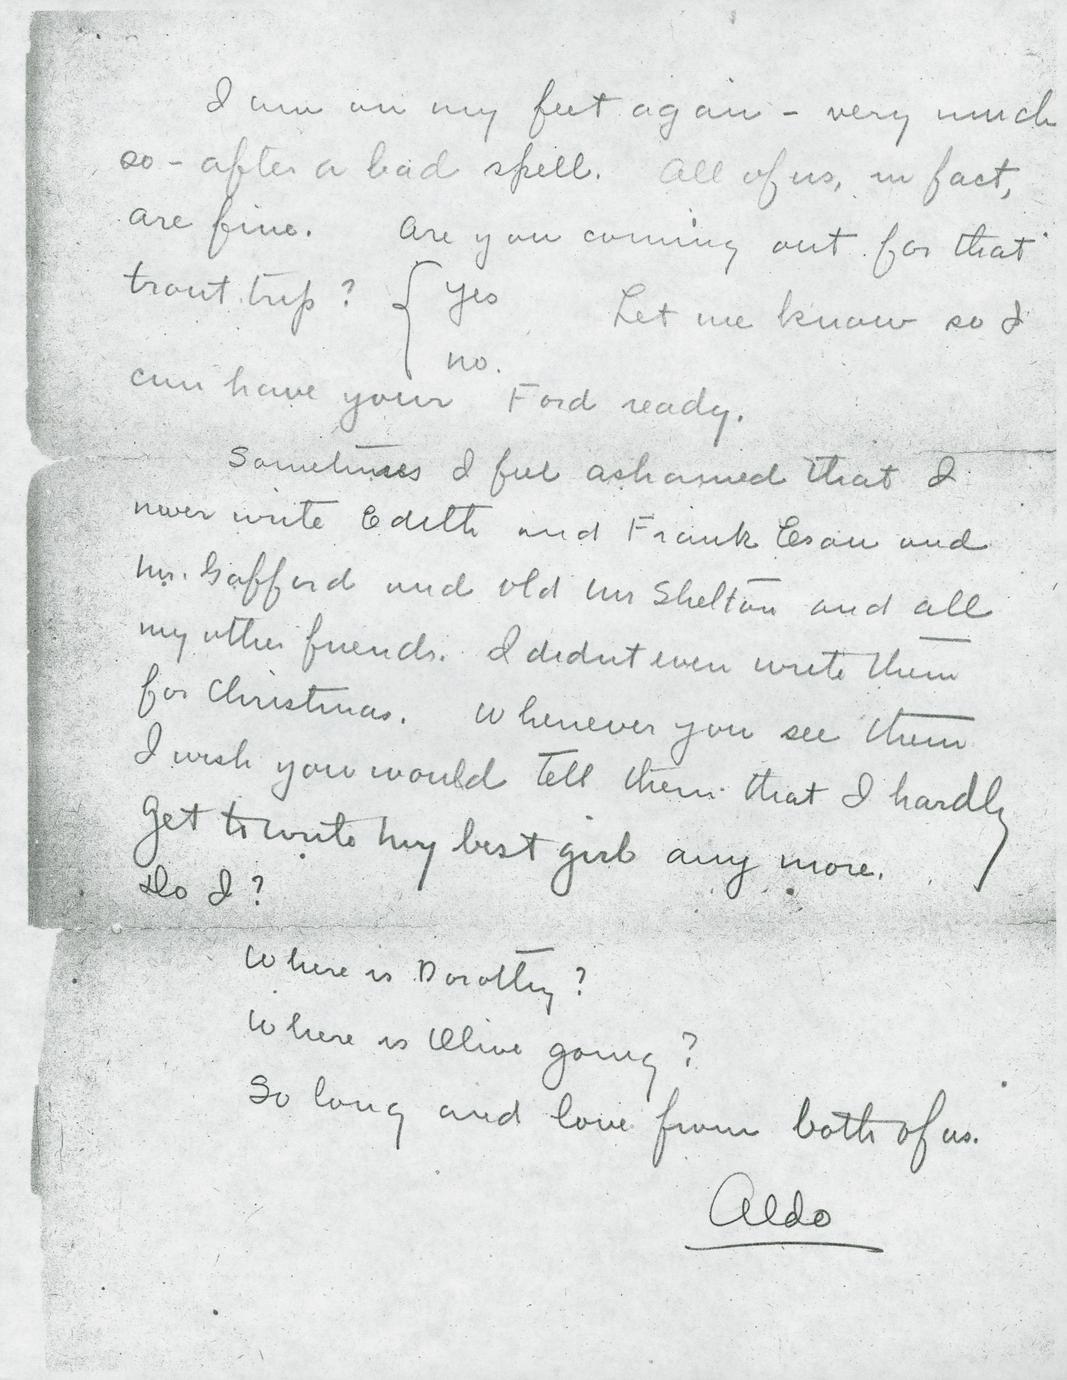 I am on my feet again - very much
so - after a bad spell. All of us, in fact,
are fine. Are you coming out for that
trout trip? { yes
Let me know so I
no.
can have your Ford ready.
Sometimes I feel ashamed that I
never write Edith and Frank Esau and
Mr. Gafford and old Mr Shelton and all
my other friends. I didnt even write them
for Christmas. Whenever you see them
I wish you would tell them that I hardly
get to write my best girl any more.
Do I?
Where is Dorothy?
Where is Olive going?
So long and love from both of us.
Aldo